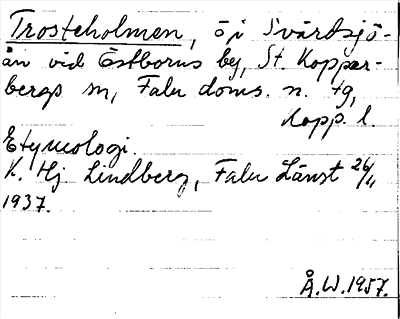 Trosteholmen, ö i Svärdsjö-
ån vid Östborns by, St. Koppar-
bergs sn, Falu doms. n. tg,
Kopp. l.
Etymologi.
K. Hj Lindberg, Falu Länst 26/11
1937.
Å.W.1957.